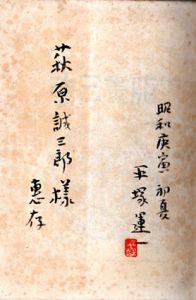 昭和庚寅初夏
平塚運一
萩原誠三郎様
恵存